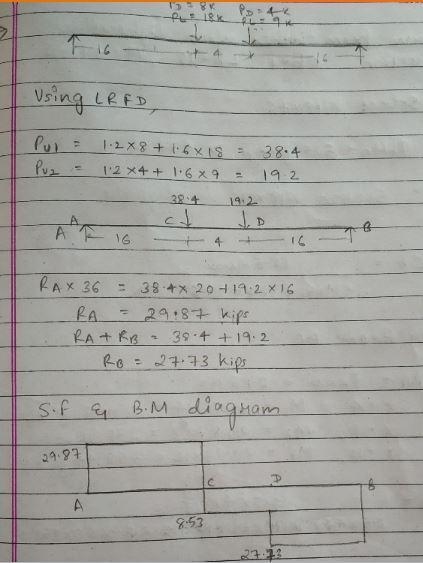 PD = 8K PD = 4K
PL = 18K PL = 9K
16 4 16
Using LRFD,
PU1 = 1.2×8 + 1.6×18 = 38.4
PU2 = 1.2×4 + 1.6×9 = 19.2
38.4 19.2
A A C D B
16 4 16
RA × 36 = 38.4 × 20 + 19.2 × 16
RA = 29.87 kips
RA + RB = 38.4 + 19.2
RB = 27.73 kips
S.F & B.M diagram
29.87
C D B
A
8.53
27.73